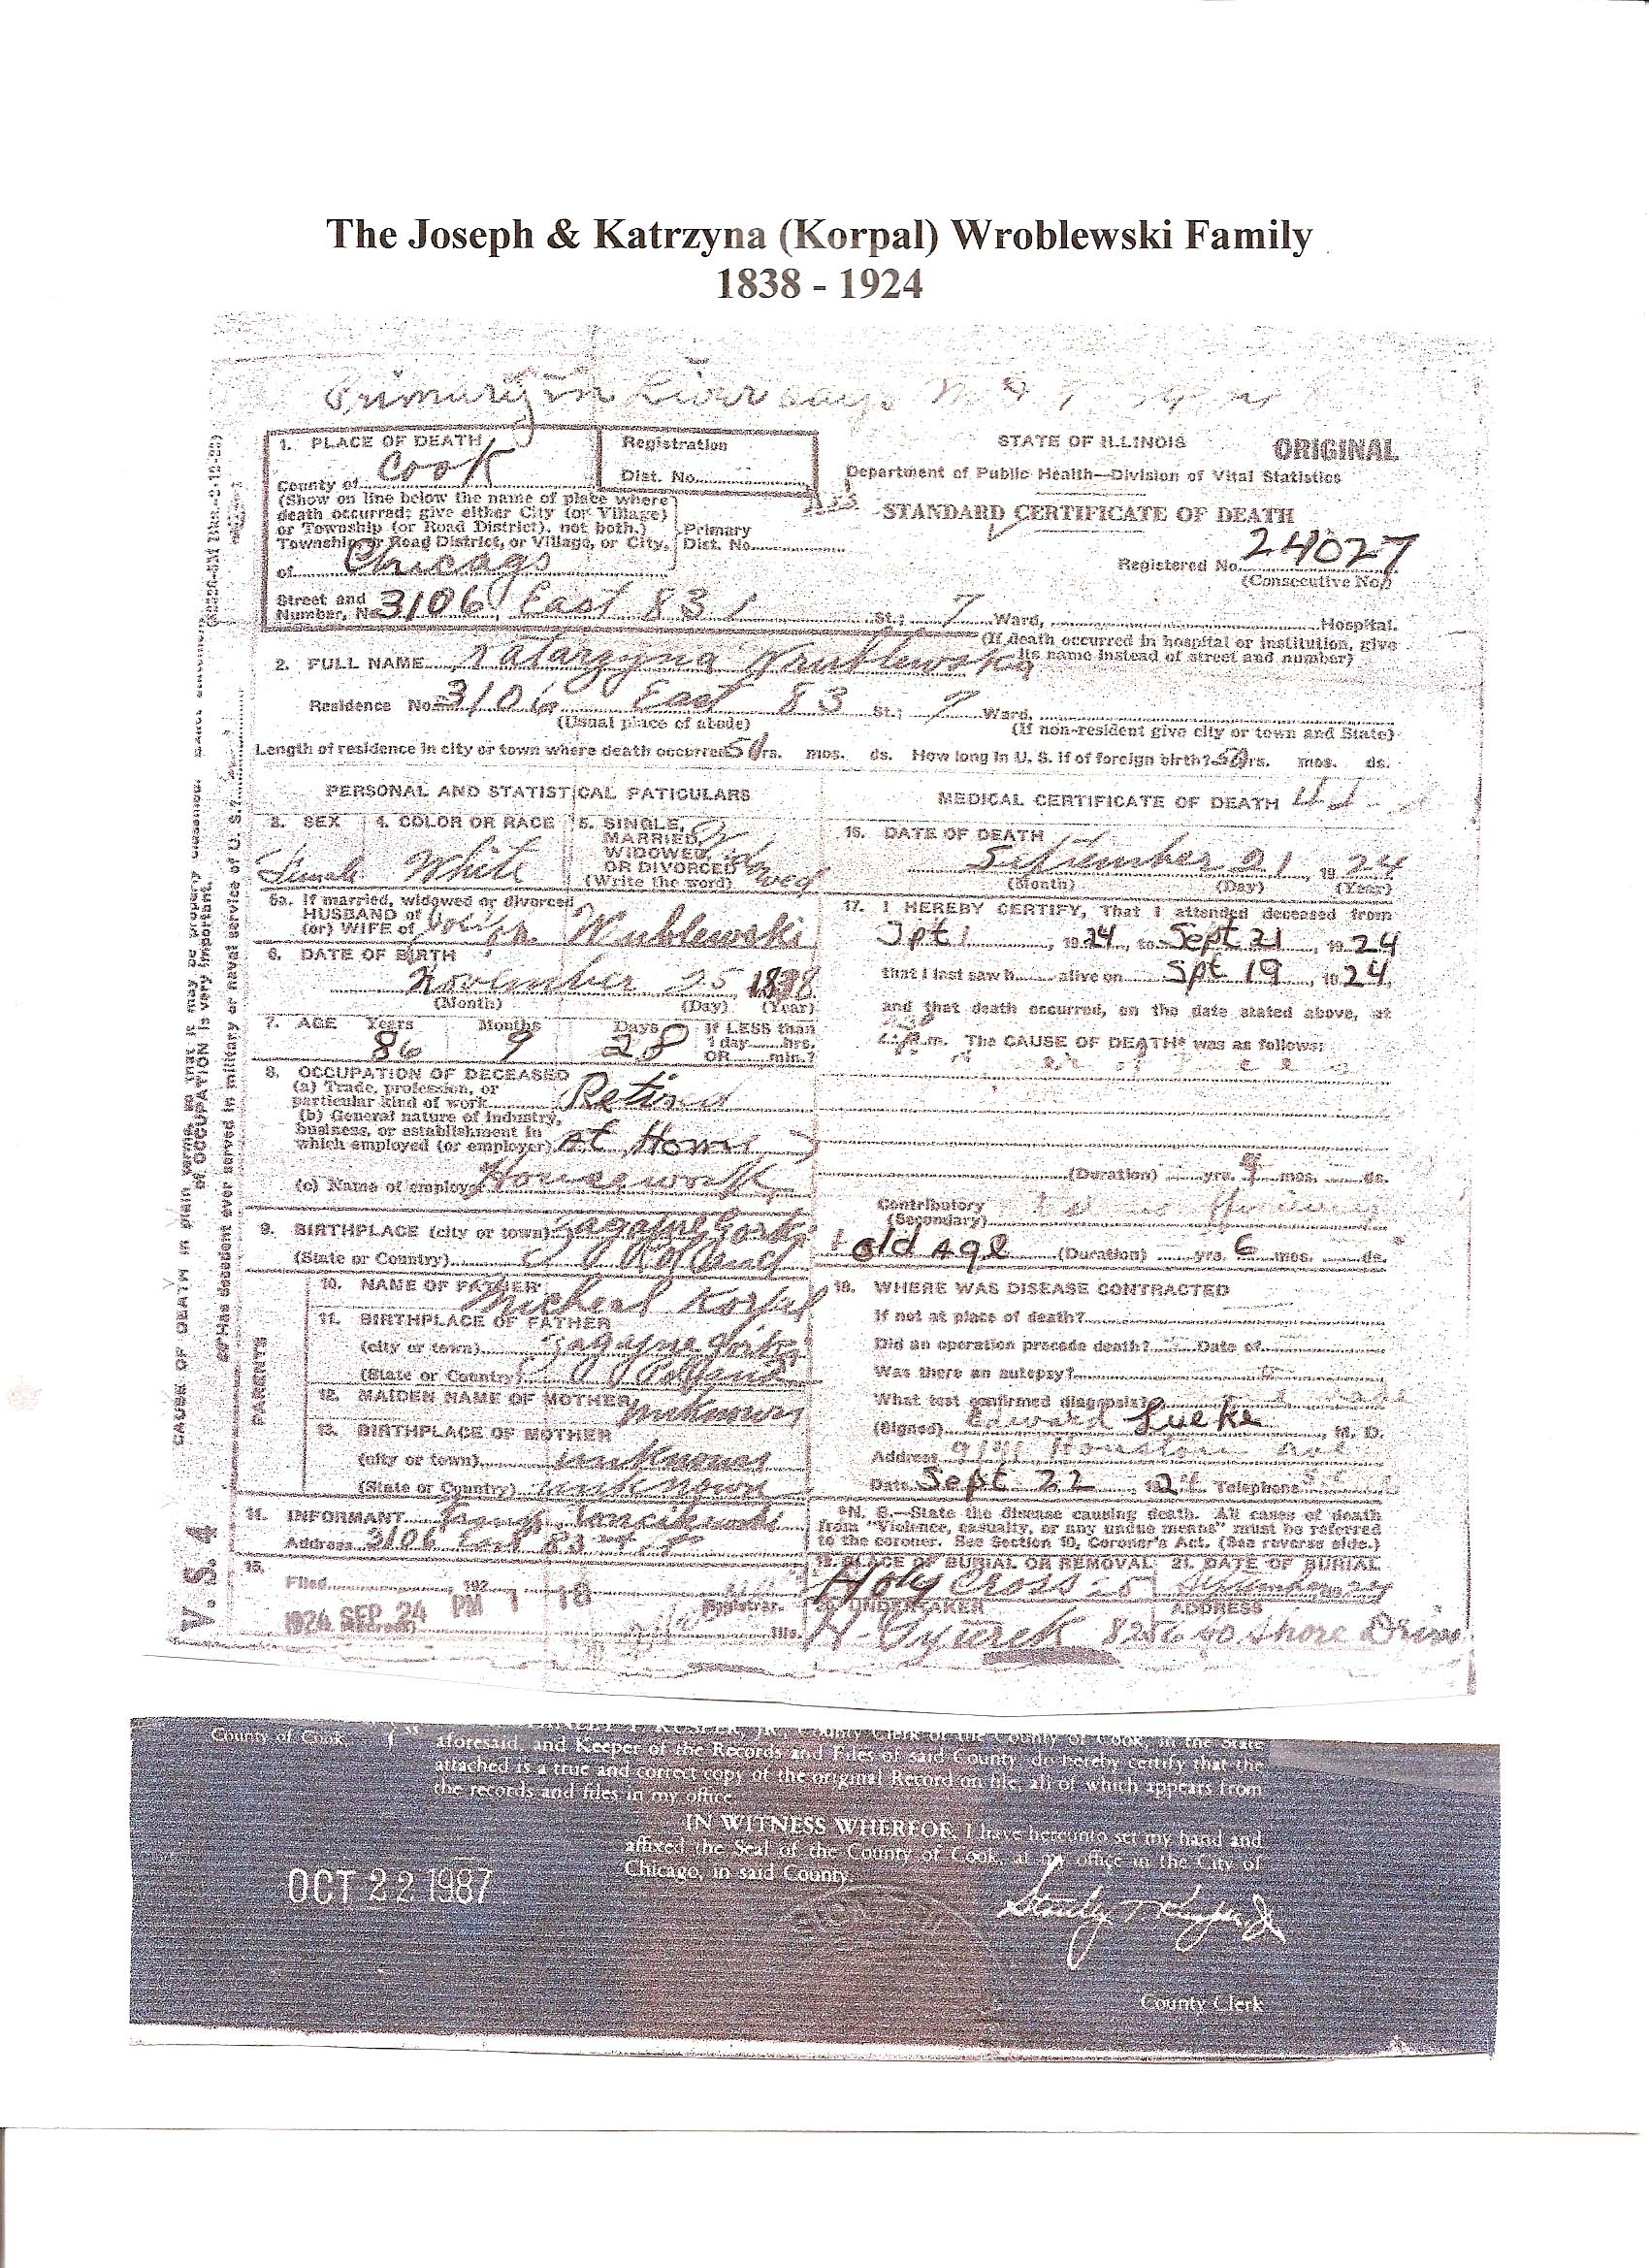 The Joseph & Katrzyna (Korpal) Wroblewski Family
1838 - 1924
Primary in Liver says
1. PLACE OF DEATH
County of Cook
Registration
Dist. No.
STATE OF ILLINOIS
ORIGINAL
Department of Public Health—Division of Vital Statistics
STANDARD CERTIFICATE OF DEATH
(Show on line below the name of place where
death occurred; give either City (or Village)
or Township (or Road District), not both.)
Township, or Road District, or Village, or City,
Primary
Dist. No.
of Chicago
Registered No. 24027
(Consecutive No.)
Street and
Number, No. 3106 East 83 St.; 7 Ward, Hospital.
(If death occurred in hospital or institution, give
its name instead of street and number)
2. FULL NAME Katarzyna Wrublewska
Residence No. 3106 East 83 St.; 7 Ward,
(Usual place of abode)
(If non-resident give city or town and State)
Length of residence in city or town where death occurred yrs. mos. ds. How long in U. S. if of foreign birth? yrs. mos. ds.
PERSONAL AND STATISTICAL PATICULARS
3. SEX
Female
4. COLOR OR RACE
White
5. SINGLE,
MARRIED,
WIDOWED,
OR DIVORCED
(Write the word)
Widowed
5a. If married, widowed or divorced
HUSBAND of
(or) WIFE of Wrublewski
6. DATE OF BIRTH
November 25
(Month) (Day) (Year)
7. AGE Years Months Days
86 9 28
If LESS than
1 day hrs.
OR min.?
8. OCCUPATION OF DECEASED
(a) Trade, profession, or
particular kind of work Retired
(b) General nature of Industry,
business, or establishment in
which employed (or employer) At Home
(c) Name of employer Housework
9. BIRTHPLACE (city or town)
(State or Country) Poland
PARENTS
10. NAME OF FATHER
Micheal Korpal
11. BIRTHPLACE OF FATHER
(city or town)
(State or Country) Poland
12. MAIDEN NAME OF MOTHER
unknown
13. BIRTHPLACE OF MOTHER
(city or town) unknown
(State or Country) unknown
14. INFORMANT
Address 3106 East 83
15.
Filed 192
1924 SEP 24 PM 1 18
Registrar.
MEDICAL CERTIFICATE OF DEATH
16. DATE OF DEATH
September 21, 1924
(Month) (Day) (Year)
17. I HEREBY CERTIFY, That I attended deceased from
Spt 1, 1924, to Sept 21, 1924
that I last saw h alive on Spt 19, 1924,
and that death occurred, on the date stated above, at
m. The CAUSE OF DEATH* was as follows:
(Duration) yrs. mos. ds.
Contributory
(Secondary)
old age (Duration) yrs. 6 mos. ds.
18. WHERE WAS DISEASE CONTRACTED
If not at place of death?
Did an operation precede death? Date of
Was there an autopsy?
What test confirmed diagnosis?
(Signed) Edward Lueke, M. D.
Address Houston Ave
Date Sept 22, 1924 Telephone
*N. B.—State the disease causing death. All cases of death
from "Violence, casualty, or any undue means" must be referred
to the coroner. See Section 10, Coroner's Act. (See reverse side.)
19. PLACE OF BURIAL OR REMOVAL
Holy Cross
21. DATE OF BURIAL
20. UNDERTAKER
ADDRESS
Shore Drive
V. S. 4
County of Cook.
aforesaid, and Keeper of the Records and Files of said County do hereby certify that the
attached is a true and correct copy of the original Record on file, all of which appears from
the records and files in my office.
IN WITNESS WHEREOF, I have hereunto set my hand and
affixed the Seal of the County of Cook, at my office in the City of
Chicago, in said County.
OCT 22 1987
County Clerk